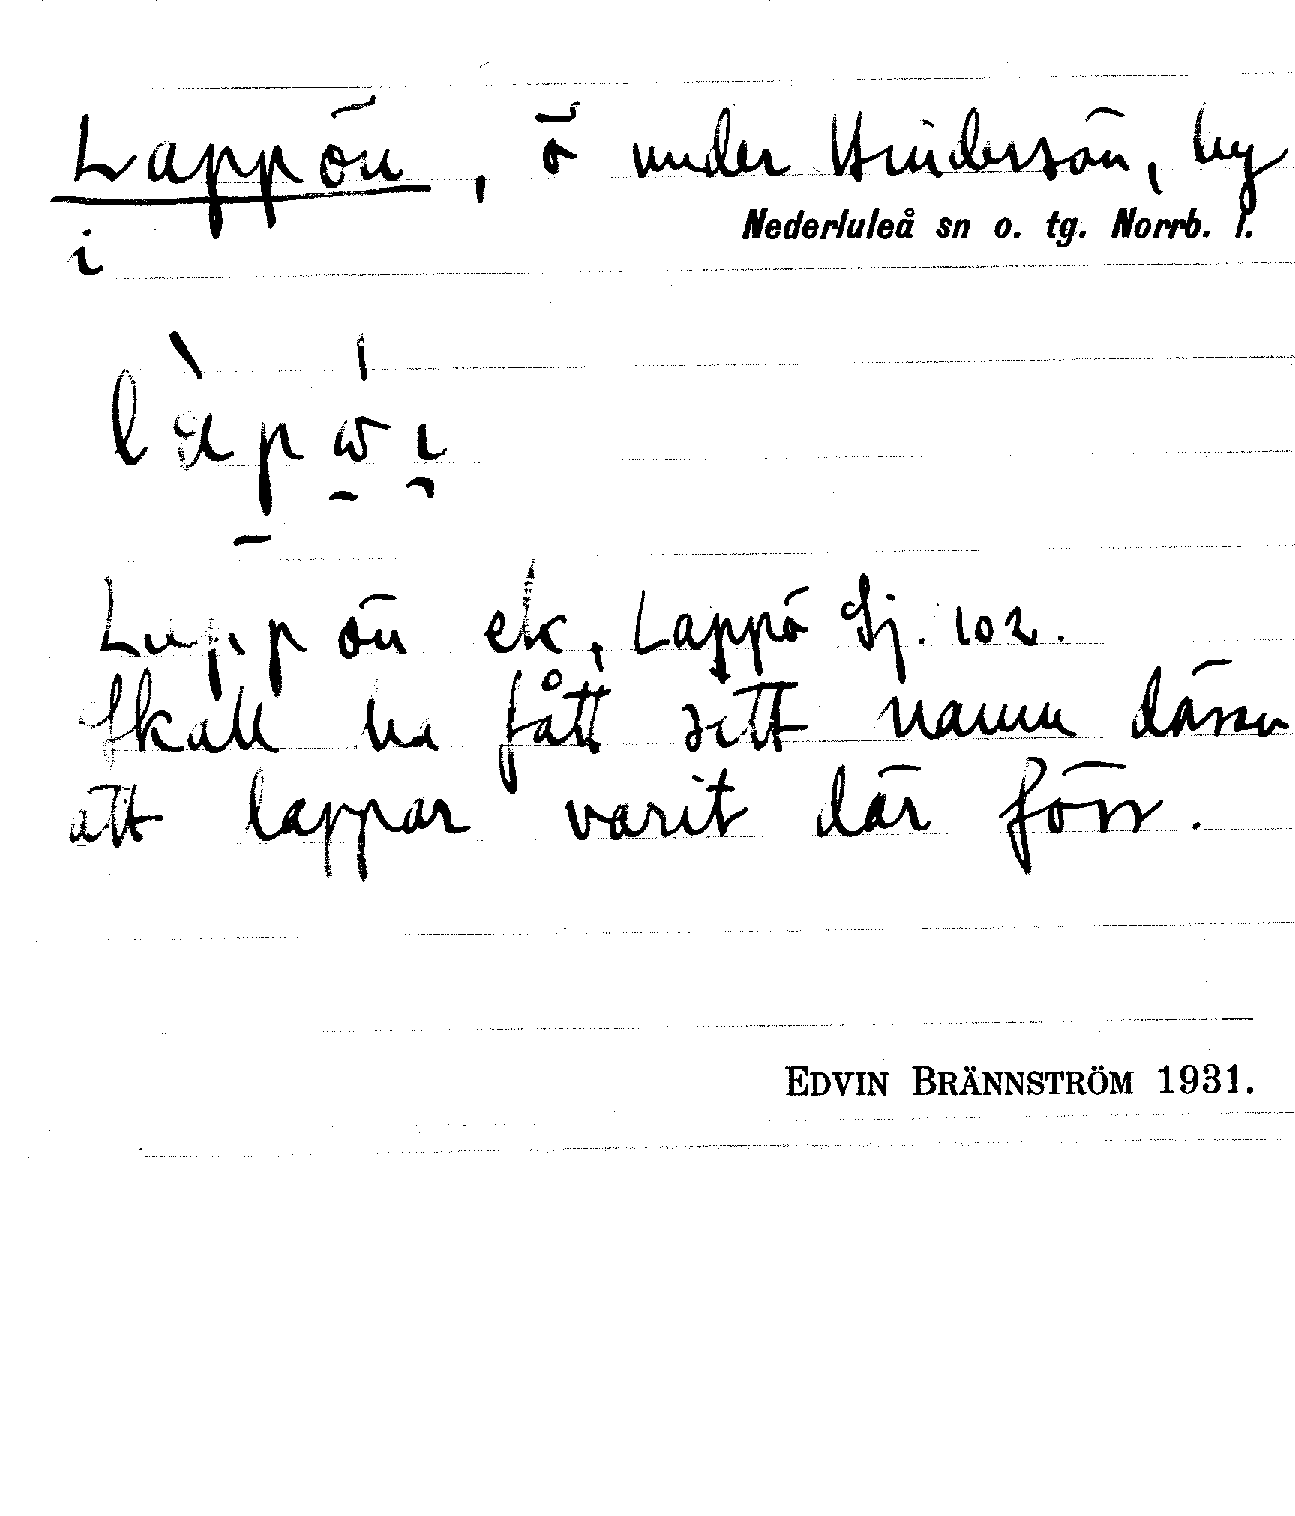 Lappön, ö under Hindersön, by
Nederluleå sn o. tg. Norrb. l.
i
Lappön ek, Lappö Sj. 102.
Skall ha fått sitt namn därav
att lappar varit där förr.
EDVIN BRÄNNSTRÖM 1931.